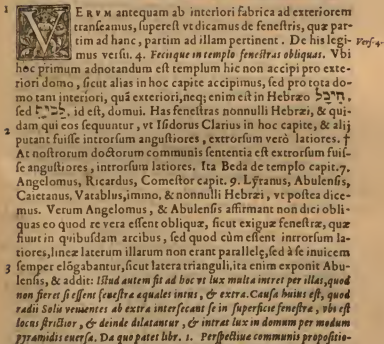 1 VERVM antequam ab interiori fabrica ad exteriorem
transeamus, superest vt dicamus de fenestris, quæ par-
tim ad hanc, partim ad illam pertinent. De his legi-
mus versu. 4. Fecitque in templo fenestras obliquas. Vbi Vers. 4.
hoc primum adnotandum est templum hic non accipi pro exte-
riori domo, sicut alias in hoc capite accipimus, sed pro tota do-
mo tam interiori, quã exteriori, neq; enim est in Hebræo היכל.
sed לבית. id est, domui. Has fenestras nonnulli Hebræi, & qui-
2 dam qui eos sequuntur, vt Isidorus Clarius in hoc capite, & alij
putant fuisse introrsum angustiores, extrorsum verò latiores. †
At nostrorum doctorum communis sententia est extrorsum fuis-
se angustiores, introrsum latiores. Ita Beda de templo capit. 7.
Angelomus, Ricardus, Comestor capit. 9. Lyranus, Abulensis,
Caietanus, Vatablus, immo, & nonnulli Hebræi, vt postea dice-
mus. Verum Angelomus, & Abulensis affirmant non dici obli-
quas eo quod re vera essent obliquæ, sicut exiguæ fenestræ, quæ
fiunt in quibusdam arcibus, sed quod cùm essent introrsum la-
tiores, lineæ laterum illarum non erant parallelę, sed à se inuicem
3 semper elõgabantur, sicut latera trianguli, ita enim exponit Abu-
lensis, & addit: Istud autem fit ad hoc vt lux multa intret per illas, quod
non fieret si essent fenestræ equales intus, & extra. Causa huius est, quod
radii Solis venientes ab extra intersecant se in superficie fenestræ, vbi est
locus strictior, & deinde dilatantur, & intrat lux in domum per modum
pyramidis euersæ. Da quo patet libr. 1. Perspectiuæ communis propositio-